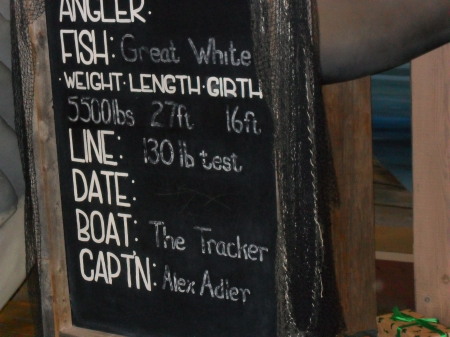 ANGLER:
FISH: Great White
·WEIGHT·LENGTH·GIRTH
5500lbs 27ft 16ft
LINE: 130 lb test
DATE:
BOAT: The Tracker
CAPT'N: Alex Adler